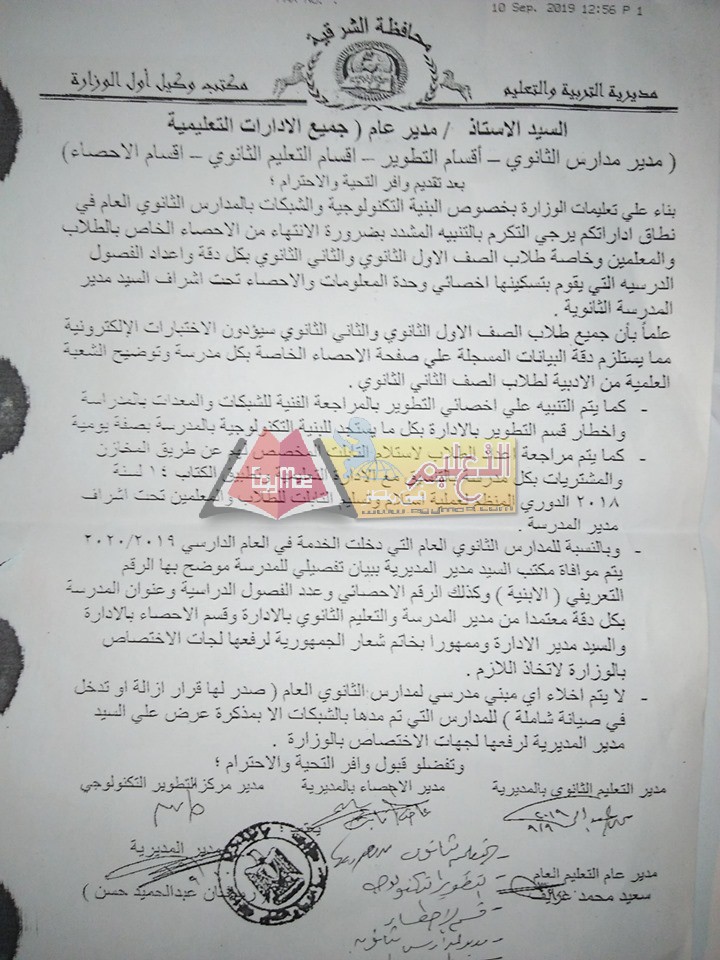 10 Sep. 2019 12:56 P 1
محافظة الشرقية
مديرية التربية والتعليم
مكتب وكيل أول الوزارة
السيد الاستاذ / مدير عام ( جميع الادارات التعليمية
( مدير مدارس الثانوي – أقسام التطوير – اقسام التعليم الثانوي – اقسام الاحصاء)
بعد تقديم وافر التحية والاحترام ؛
بناء علي تعليمات الوزارة بخصوص البنية التكنولوجية والشبكات بالمدارس الثانوي العام في
نطاق اداراتكم يرجي التكرم بالتنبيه المشدد بضرورة الانتهاء من الاحصاء الخاص بالطلاب
والمعلمين وخاصة طلاب الصف الاول الثانوي والثاني الثانوي بكل دقة واعداد الفصول
الدرسيه التي يقوم بتسكينها اخصائي وحدة المعلومات والاحصاء تحت اشراف السيد مدير
المدرسة الثانوية .
علماً بأن جميع طلاب الصف الاول الثانوي والثاني الثانوي سيؤدون الاختبارات الإلكترونية
مما يستلزم دقة البيانات المسجلة علي صفحة الاحصاء الخاصة بكل مدرسة وتوضيح الشعبة
العلمية من الادبية لطلاب الصف الثاني الثانوي .
- كما يتم التنبيه علي اخصائي التطوير بالمراجعة الفنية للشبكات والمعدات بالمدراسة
واخطار قسم التطوير بالادارة بكل ما يستجد للبنية التكنولوجية بالمدرسة بصفة يومية
- كما يتم مراجعة الطلاب لاستلام التابلت المخصص لهم عن طريق المخازن
والمشتريات بكل مع الادارة الكتاب ١٤ لسنة
٢٠١٨ الدوري المنظم لعملية استلام وتسليم التابلت للطلاب والمعلمين تحت اشراف
مدير المدرسة .
- وبالنسبة للمدارس الثانوي العام التي دخلت الخدمة في العام الدارسي ٢٠٢٠/٢٠١٩
يتم موافاة مكتب السيد مدير المديرية ببيان تفصيلي للمدرسة موضح بها الرقم
التعريفي ( الابنية ) وكذلك الرقم الاحصائي وعدد الفصول الدراسية وعنوان المدرسة
بكل دقة معتمدا من مدير المدرسة والتعليم الثانوي بالادارة وقسم الاحصاء بالادارة
والسيد مدير الادارة وممهورا بخاتم شعار الجمهورية لرفعها لجات الاختصاص
بالوزارة لاتخاذ اللازم .
- لا يتم اخلاء اي مبني مدرسي لمدارس الثانوي العام ( صدر لها قرار ازالة او تدخل
في صيانة شاملة ) للمدارس التي تم مدها بالشبكات الا بمذكرة عرض علي السيد
مدير المديرية لرفعها لجهات الاختصاص بالوزارة .
وتفضلو قبول وافر التحية والاحترام ؛
مدير التعليم الثانوي بالمديرية
مدير الاحصاء بالمديرية
مدير مركز التطوير التكنولوجي
٢٠١٩
٩/٩
مدير عام التعليم العام
سعيد محمد
مدير المديرية
عبدالحميد حسن )
التعليم
www.eyume.com